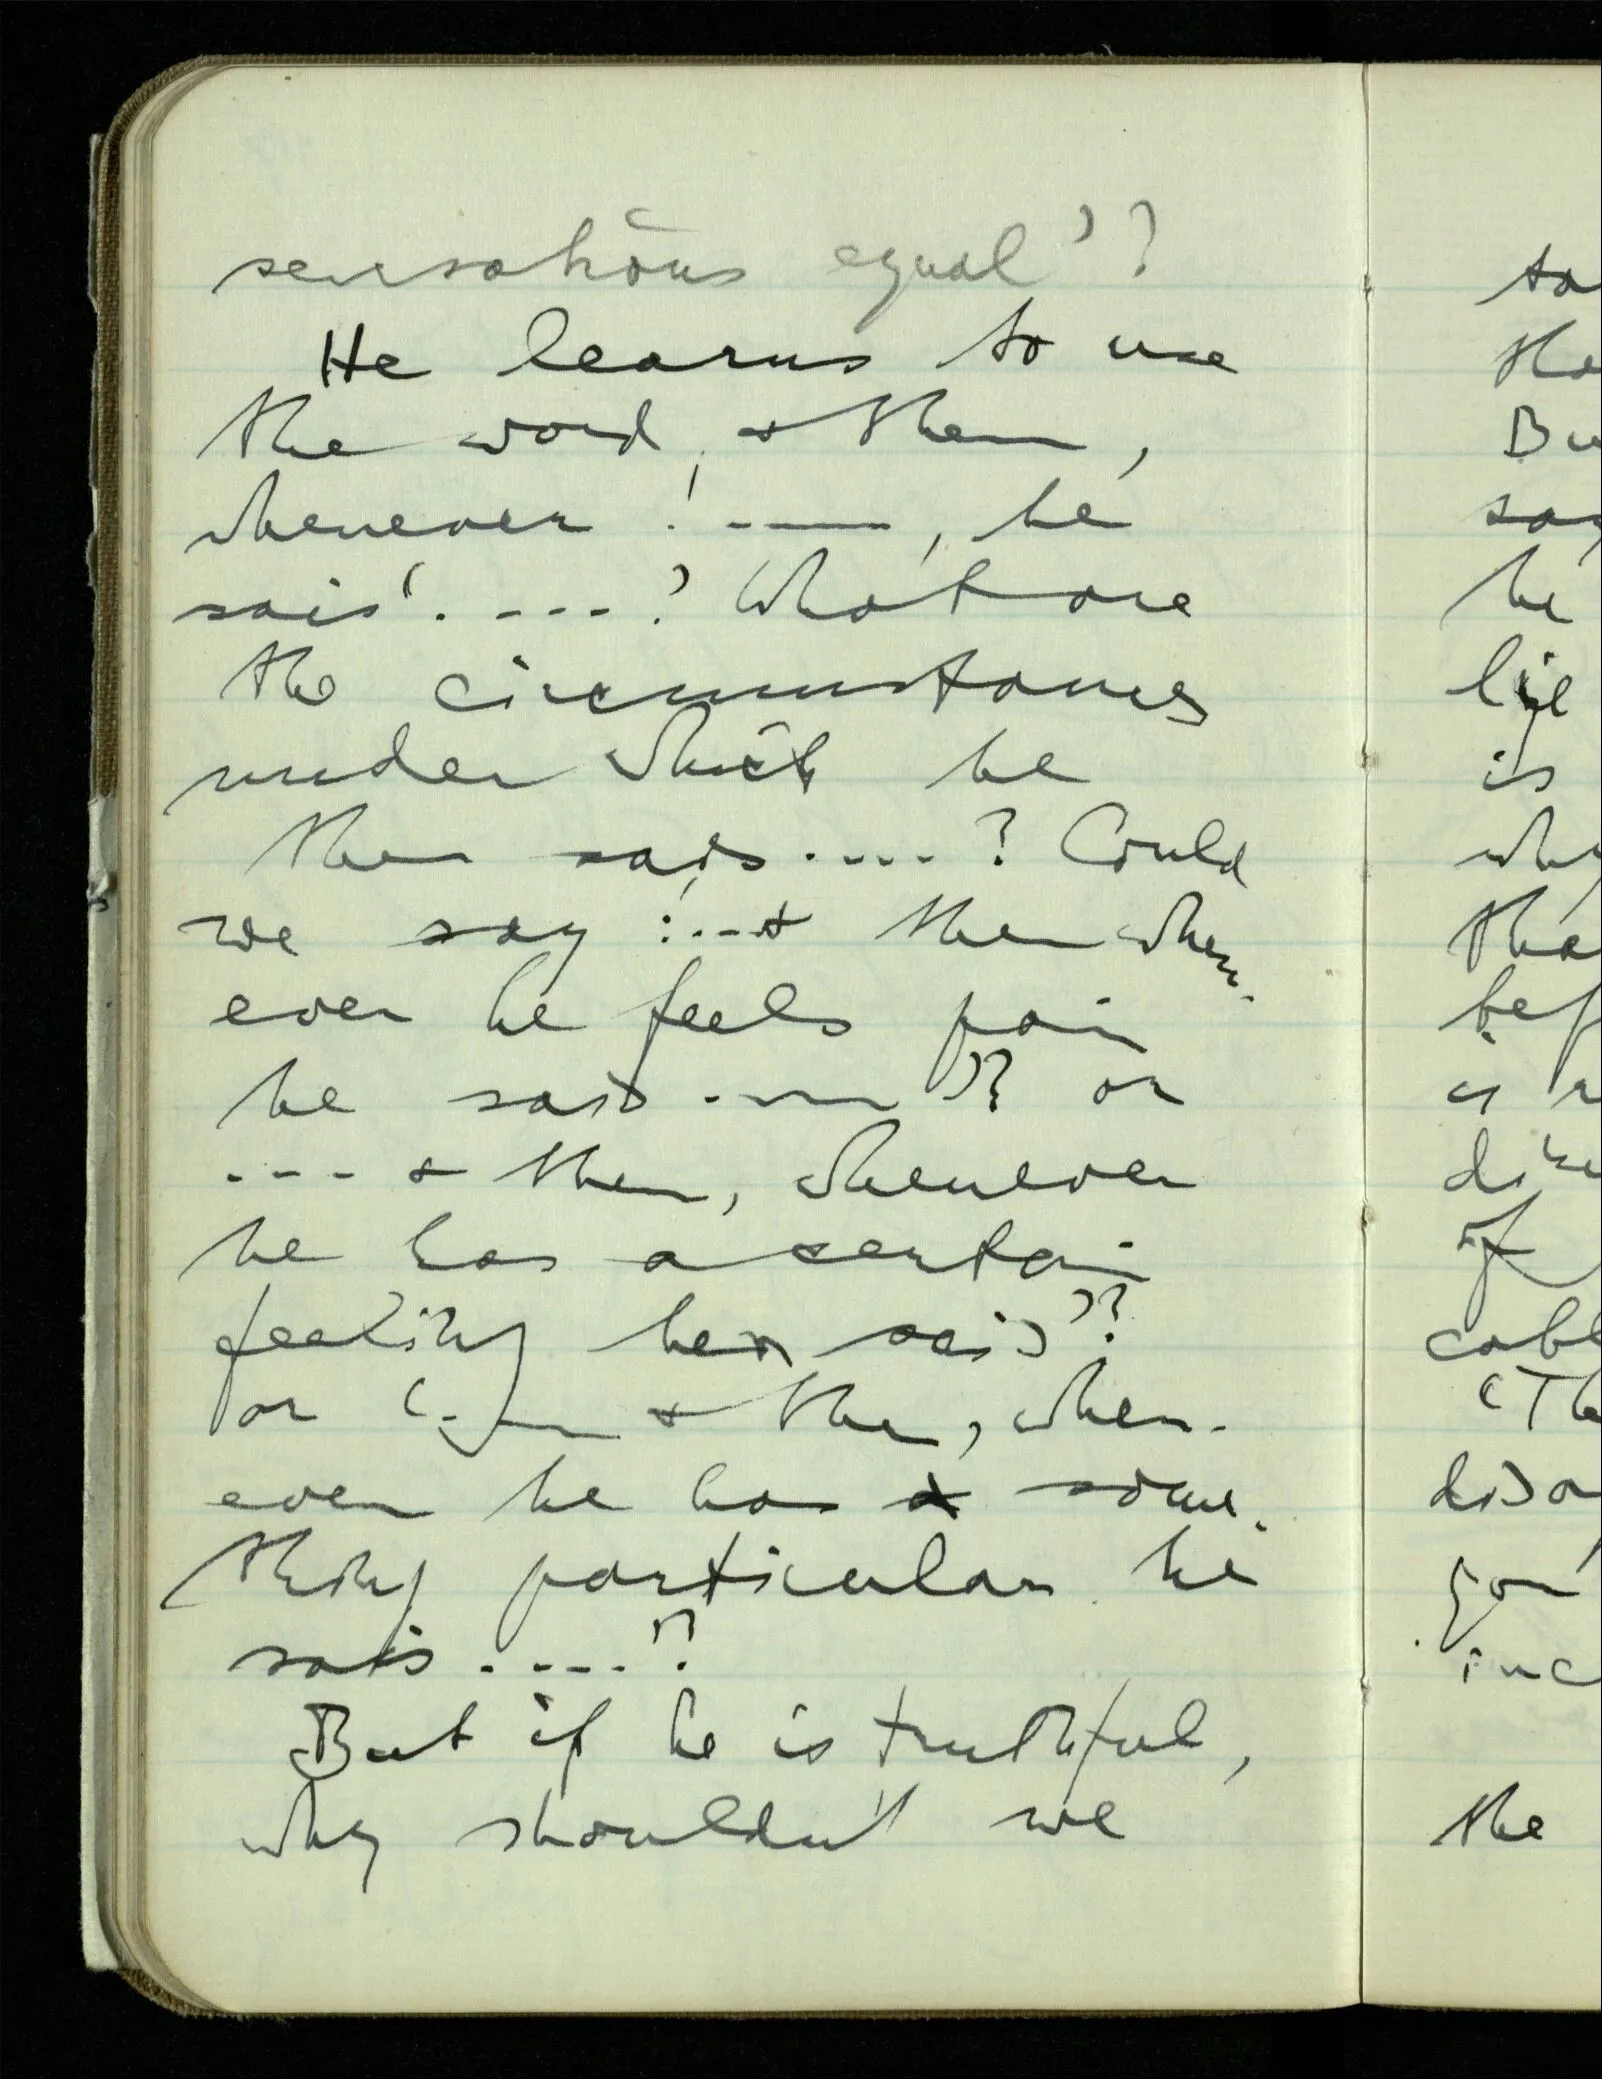 sensations equal'?
He learns to use
the word, & then,
whenever ! - - - -, he
sais '. - - - -'? What are
the circumstances
under which he
then sais . - - - - ? Could
we say : '. - - - & then when-
ever he feels pain
he sais . - - - - '? or
- - - - & then, whenever
he has a certain
feeling he sais'?
or '. - - - & then, when-
ever he has some-
thing particular he
sais . - - - - '?
But if he is truthful,
why shouldn't we
to
the
Bu
say
he
lie
is
why
tha
bef
is
dis
of
cabl
'Th
diso
you
inc
the